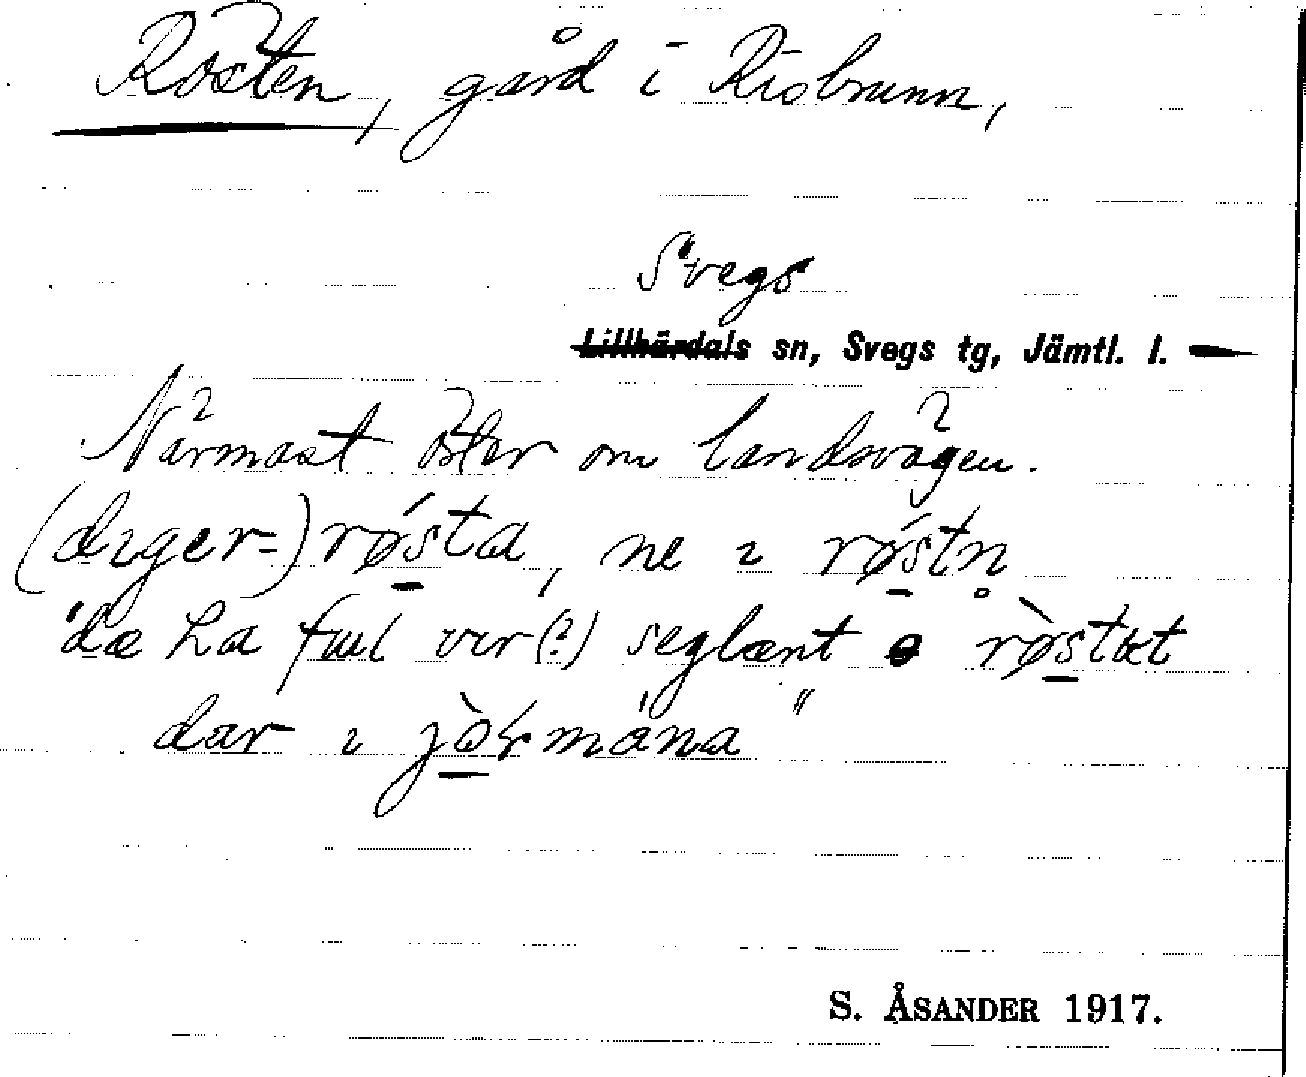 Rösten, gård i Risbrunn,
Svegs
Lillhärdals sn, Svegs tg, Jämtl. l.
Närmast öster om landsvägen.
(dıger-) røsta, ne ı røstn̥
"dæ ha fɯl vɩr(?) seglænt o røstɑt
dar ı jòrmána"
S. ÅSANDER 1917.